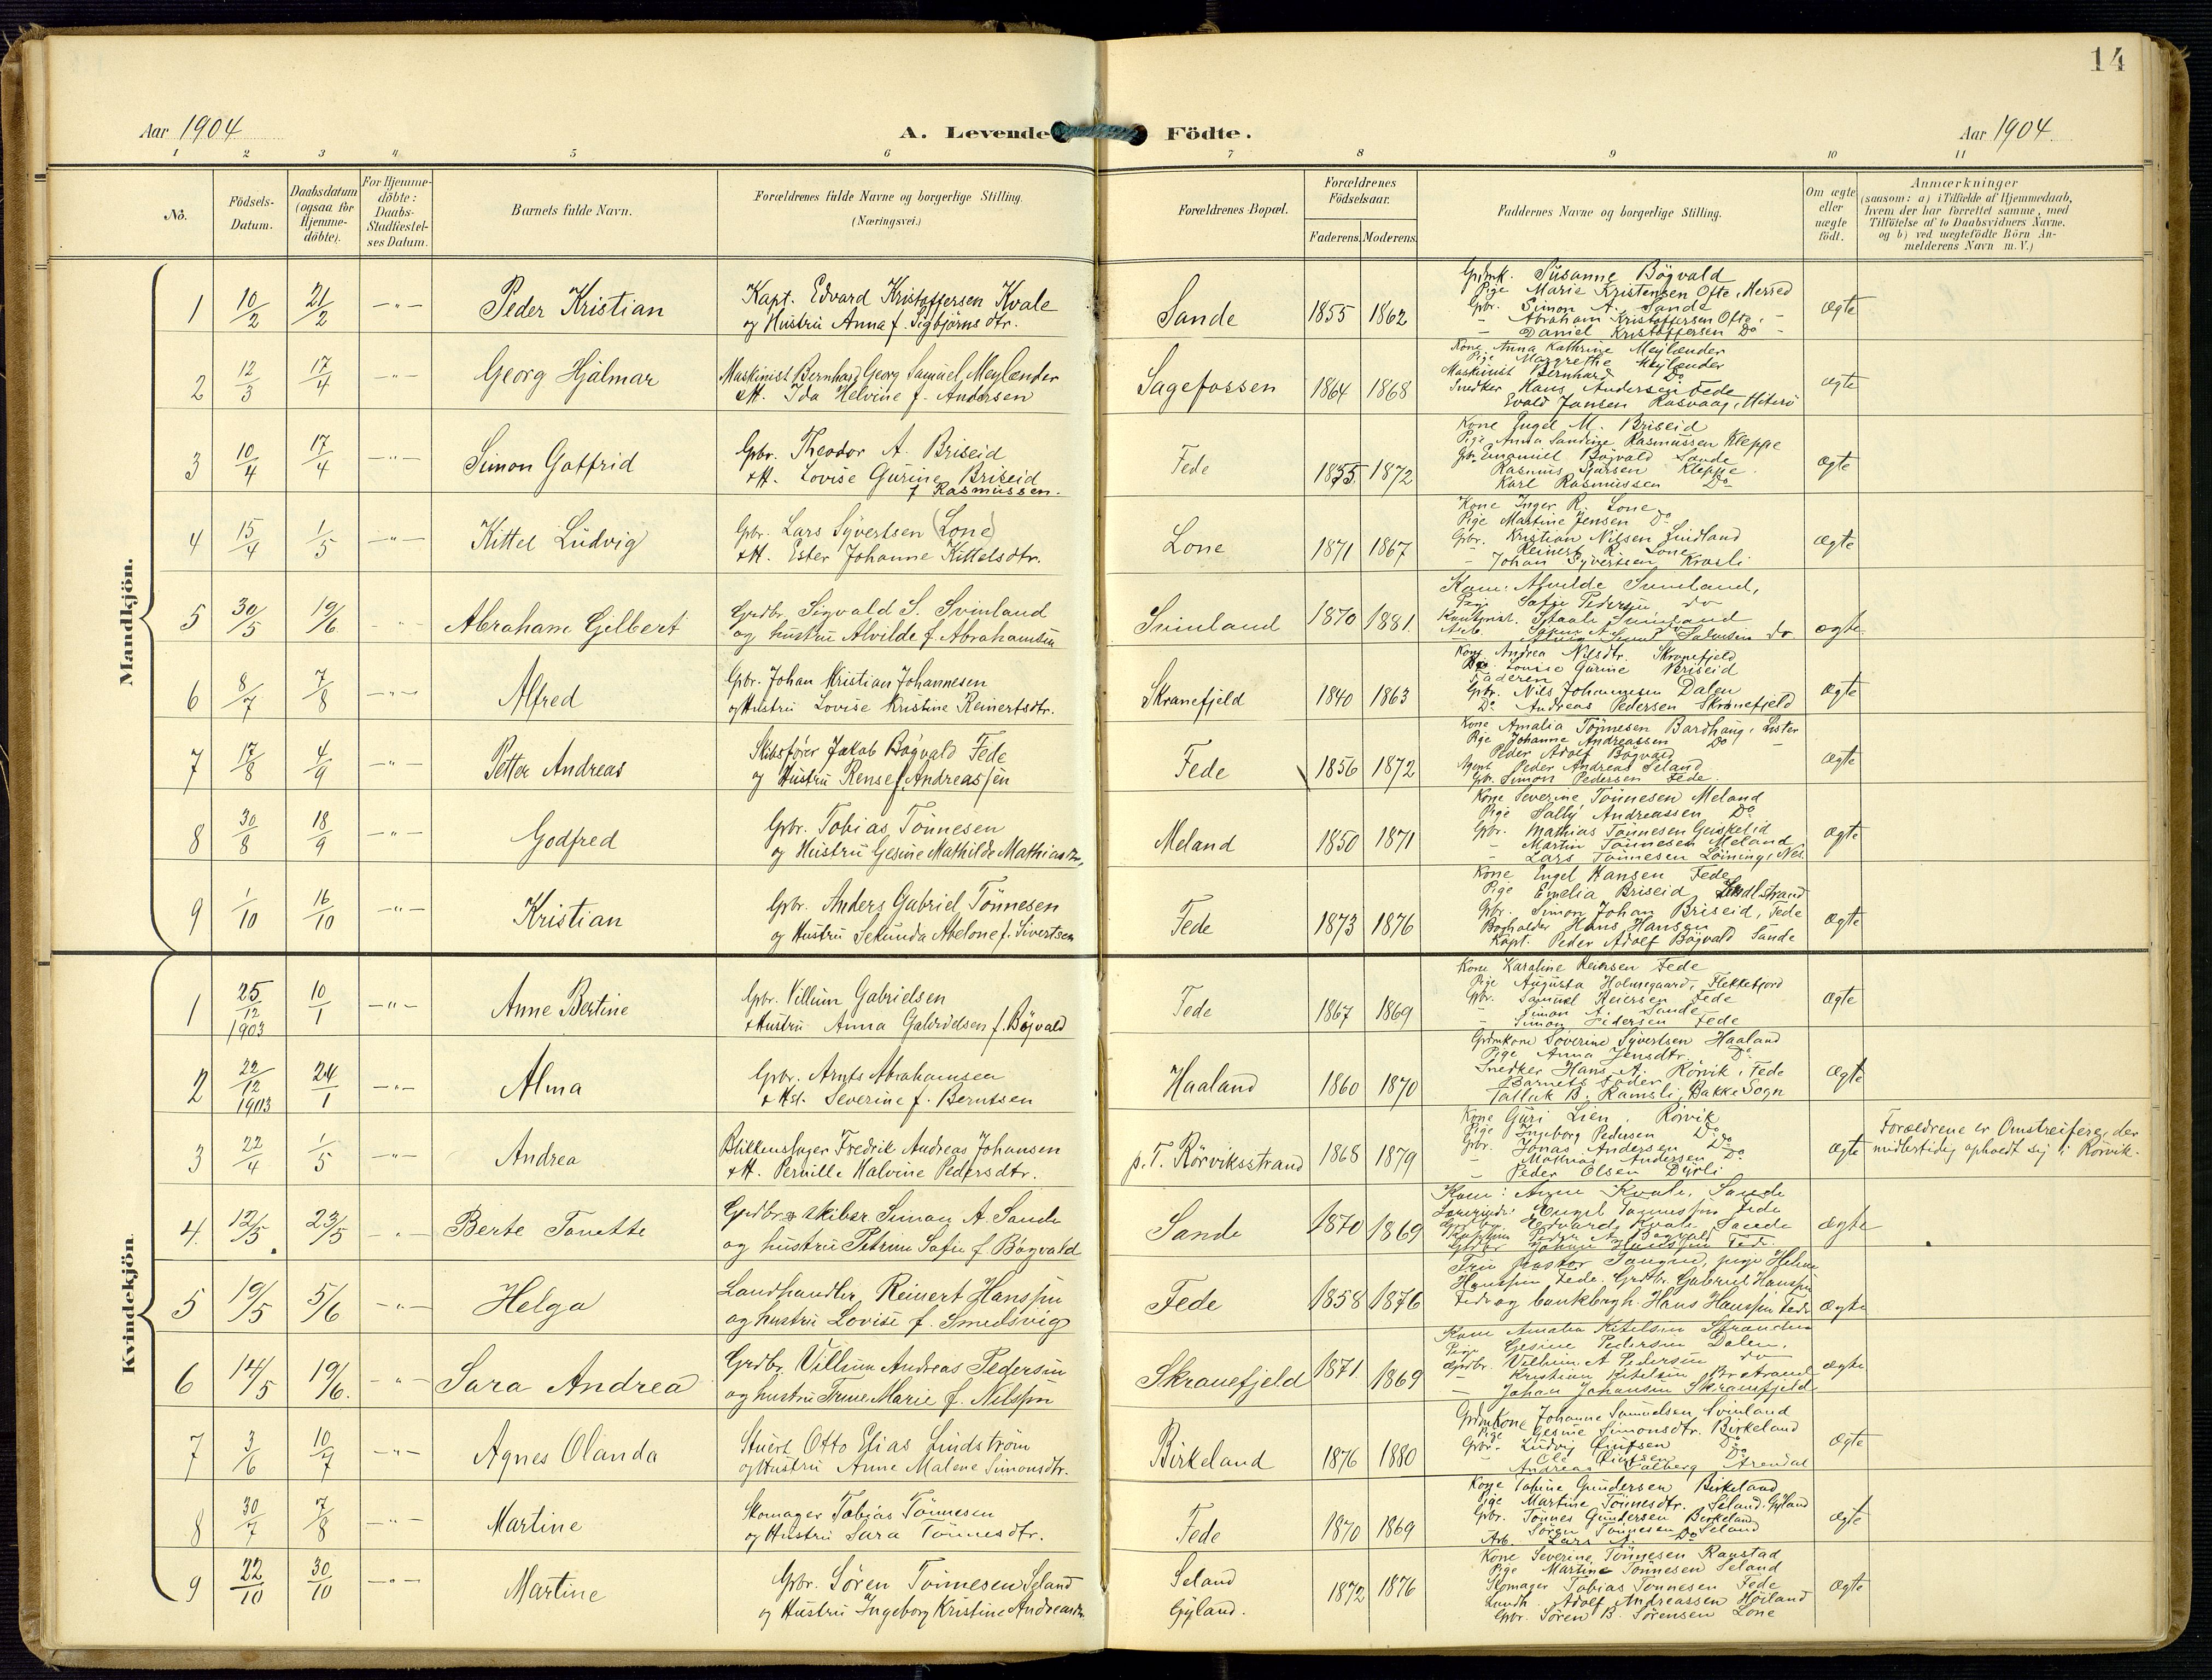 14
Aar 1904
A. Levende Födte.
Aar 1904
1 2 3 4 5 6 7 8 9 10 11
No.
Födsels-Datum.
Daabsdatum (ogsaa for Hjemmedöbte).
For Hjemmedöbte: Daabs-Stadfæstelses Datum.
Barnets fulde Navn.
Forældrenes fulde Navne og borgerlige Stilling. (Næringsvei.)
Forældrenes Bopæl.
Forældrenes Födselsaar.
Faderens. Moderens.
Faddernes Navne og borgerlige Stilling.
Om ægte eller uægte födt.
Anmærkninger
(saasom: a) i Tilfælde af Hjemmedaab,
hvem der har forrettet samme, med
Tilföielse af to Daabsvidners Navne.
og b) ved uægtefödte Börn An-
melderens Navn m.V.)
Mandkjön.
1 10/2 21/2 -"- Peder Kristian
Kapt. Edvard Kristoffersen Kvale
og Hustru Anna f. Sigbjørnsdtr.
Sande 1855 1862
Grdmk. Susanne Bögvald
Pige Marie Kristensen Ofte, Herred
Gbr. Simon A. Sande
- Abraham Kristoffersen Ofte -
- Daniel Kristoffersen Do -
ægte
2 12/3 17/4 -"- Georg Hjalmar
Maskinist Bernhard Georg Samuel Meylænder
& H. Ida Helvine f. Andersen
Sagefossen 1864 1868
Kone Anna Kathrine Meylænder
Pige Margrethe Meylænder
Maskinist Bernhard Do
Snedker Hans Andersen Fede
Evald Jansen Rasvaag, Hiterö
ægte
3 10/4 17/4 -"- Simon Gotfrid
Gbr. Theodor A. Briseid
& H. Lovise Gurine Briseid
f. Rasmussen.
Fede 1855 1872
Kone Engel M. Briseid
Pige Anna Sandrine Rasmussen Kleppe
Gbr. Emanuel Bögvald Sande
Rasmus Kleppe.
Karl Rasmussen Do
ægte
4 15/4 1/5 -"- Kittel Ludvig
Gbr. Lars Syvertsen (Lone)
& H. Ester Johanne Kittelsdtr.
Lone 1871 1867
Kone Inger R. Lone
Pige Martine Jensen Do
Gbr. Kristian Nilsen Lindland
- Reinert R. Lone
- Johan Syvertsen Krosli
ægte
5 30/5 19/6 -"- Abraham Gilbert
Grdbr. Sigvald S. Svinland
og hustru Alvilde f. Abrahamsen
Svinland 1870 1881.
Kone: Alvilde Svinland,
Pige Sofie Pedersen, do
Svinland
do.
ægte
6 8/7 7/8 -"- Alfred
Gbr. Johan Kristian Johannesen
og Hustru Lovise Kristine Reinertsdtr.
Skranefjeld 1840 1863
Kone Andrea Nilsdtr. Skranefjeld
Pige Lovise Gurine Briseid
Faderen
Gbr. Nils Johannesen Dalen
Do Andreas Pedersen Skranefjeld
ægte
7 17/8 4/9 -"- Petter Andreas
Skibsfører Jakob Bögvald Fede
og Hustru Rense f. Andreassen
Fede 1856 1872
Kone Amalia Tönnesen Bardhaug, Lister
Pige Johanne Andreassen Do -
Peder Adolf Bögvald
Agent Peder Andreas Seland
Gbr. Simon Pedersen Fede.
ægte
8 30/8 18/9 -"- Godfred
Gbr. Tobias Tönnesen
og Hustru Gesine Mathilde Mathiasdtr.
Meland 1850 1871
Kone Severine Tönnesen Meland
Pige Sally Andreassen Do
Gbr. Mathias Tönnesen Geiskelid
- Martin Tönnesen Meland
- Lars Tönnesen Löining, Nes.
ægte
9 1/10 16/10 -"- Kristian
Gbr. Anders Gabriel Tönnesen
og Hustru Sekunda Abelone f. Sivertsen
Fede 1873 1876
Kone Engel Hansen Fede
Pige Emelia Briseid
Gbr. Simon Johan Briseid, Fede
Bogholder Hans Hansen
Kapt. Peder Adolf Bögvald Sande
ægte
Kvindekjön.
1 25/12 1903 10/1 -"- Anne Bertine
Gbr. Villum Gabrielsen
& Hustru Anna Gabrielsen f. Bögvald
Fede 1867 1869
Kone Karoline Reiersen Fede
Pige Augusta Holmegaard, Flekkefjord
Gbr. Samuel Reiersen Fede
- Simon A. Sande
- Simon Pedersen Fede
ægte
2 22/12 1903 24/1 -"- Alma
Gbr. Arnts Abrahamsen
& Hst. Severine f. Berntsen
Haaland 1860 1870
Grdmkone Severine Syvertsen Haaland
Pige Anna Jensdtr. Do
Snedker Hans A. Rörvik, Fede
Barnets Fader
Tallak B. Ramsli, Bakke Sogn
ægte
3 22/4 1/5 -"- Andrea
Blikkenslager Fredrik Andreas Johansen
& H. Pernille Halvine Pedersdtr.
p.T. Rörviksstrand 1868 1879
Kone Guri Lien, Rörvik
Pige Ingeborg Pedersen Do
Gbr. Jonas Andersen Do
- Mathias Andersen Do
- Peder Olsen Dyrli
ægte
Forældrene er Omstreifere, der
midlertidig opholdt sig i Rörvik.
4. 12/5 23/5 -"- Berte Tonette
Grdbr. & skiber Simon A. Sande
og hustru Petrine Sofie f. Bögvald
Sande 1870 1869
Kone: Anne Kvale, Sande
Lærerinde Engel Tønnessen Fede
Grdbr. Edvard Kvale Sande
Peder A. Bögvald
Johan Hanssen Fede
ægte
5 19/5 5/6 -"- Helga
Landhandler Reinert Hanssen
og hustru Lovise f. Smedsvig
Fede 1858 1876
Fru Pastor pige Helene
Hanssen Fede. Grdbr. Gabriel Hanssen
Fede og bankbogh. Hans Hanssen Fede
ægte
6 14/5 19/6. -"- Sara Andrea
Grdbr. Villum Andreas Pedersen
og hustru Trine Marie f. Nilssen
Skranefjeld 1871 1869
Kone Amalia Kitelsen Stranden
Pige Gesine Pedersen Dalen.
Grdbr. Vilhelm A Pedersen do
- Kristian Kitelsen
- Johan Johansen Skranefjeld
ægte
7 3/6 10/7 -"- Agnes Olanda
Stuert Otto Elias Lindström
og Hustru Anne Malene Simonsdtr.
Birkeland 1876 1880
Grdmkone Johanne Samuelsen Svinland
Pige Gesine Simonsdtr. Birkeland
Gbr. Ludvig Do
- Ole Do
Andreas Arendal
ægte
8 30/7 7/8 -"- Martine
Skomager Tobias Tönnesen
og Hustru Sara Tönnesdtr.
Fede 1870 1869
Kone Tobine Gundersen Birkeland
Pige Martine Tönnesdtr. Seland, Gyland
Gbr. Tönnes Gundersen Birkeland
Sören Tönnesen Seland
Arb. Lars A. Do
ægte
9 22/10 30/10 -"- Martine
Gbr. Sören Tönnesen Seland
og Hustru Ingeborg Kristine Andreasdtr.
Seland
Gyland.
1872 1876
Kone Severine Tönnesen Ranstad
Pige Martine Tönnesen Seland
Skomager Tobias Tönnesen Fede
Landh. Adolf Andreassen Höiland
Gbr. Sören B. Sörensen Lone
ægte